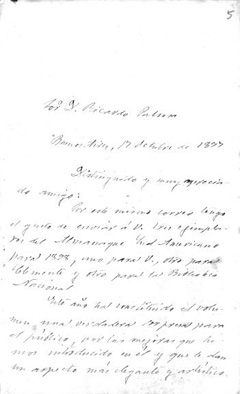 5
Sor D. Ricardo Palma
Buenos Aires, 17 Octubre de 1897
Distinguido y muy aprecia-
do amigo:
Por este mismo correo tengo
el gusto de enviar á V. tres ejempla-
res del Almanaque Sud-Americano
para 1898, uno para V., otro para
Clemente y otro para la Biblioteca
Nacional
Este año ha constituido el volu-
men una verdadera sorpresa para
el público, por las mejoras que he-
mos introducido en él y que le dan
un aspecto más elegante y artístico.